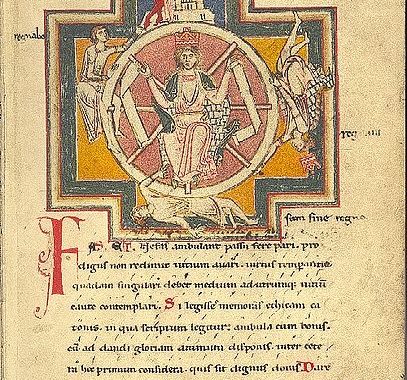 regnabo
regnaui
sum sine regno
FAS ET Nefas ambulant passu fere pari. pro
digus non redimit uitium auari. uirtus temperantia
quadam singulari debet medium ad utrumque uitium
caute contemplari. Si legisse memoras ethicam ca
tonis. in qua scriptum legitur. ambula cum bonis.
cum ad dandi gloriam animum disponis. inter cete
ra hoc primum considera. quis sit dignus donis. Dare